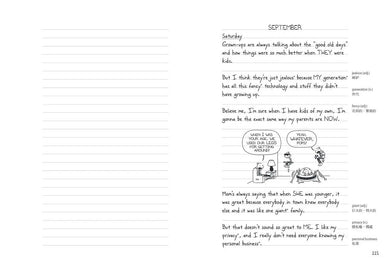 SEPTEMBER
Saturday
Grown-ups are always talking about the "good old days"
and how things were so much better when THEY were
kids.
But I think they're just jealous¹ because MY generation²
has all this fancy³ technology and stuff they didn't
have growing up.
Believe me, I'm sure when I have kids of my own, I'm
gonna be the exact same way my parents are NOW.
WHEN I WAS
YOUR AGE, WE
USED OUR LEGS
FOR GETTING
AROUND!
YEAH,
WHATEVER,
POPS!
Mom's always saying that when SHE was younger, it
was great because everybody in town knew everybody
else and it was like one giant⁴ family.
But that doesn't sound so great to ME. I like my
privacy⁵, and I really don't need everyone knowing my
personal business⁶.
225